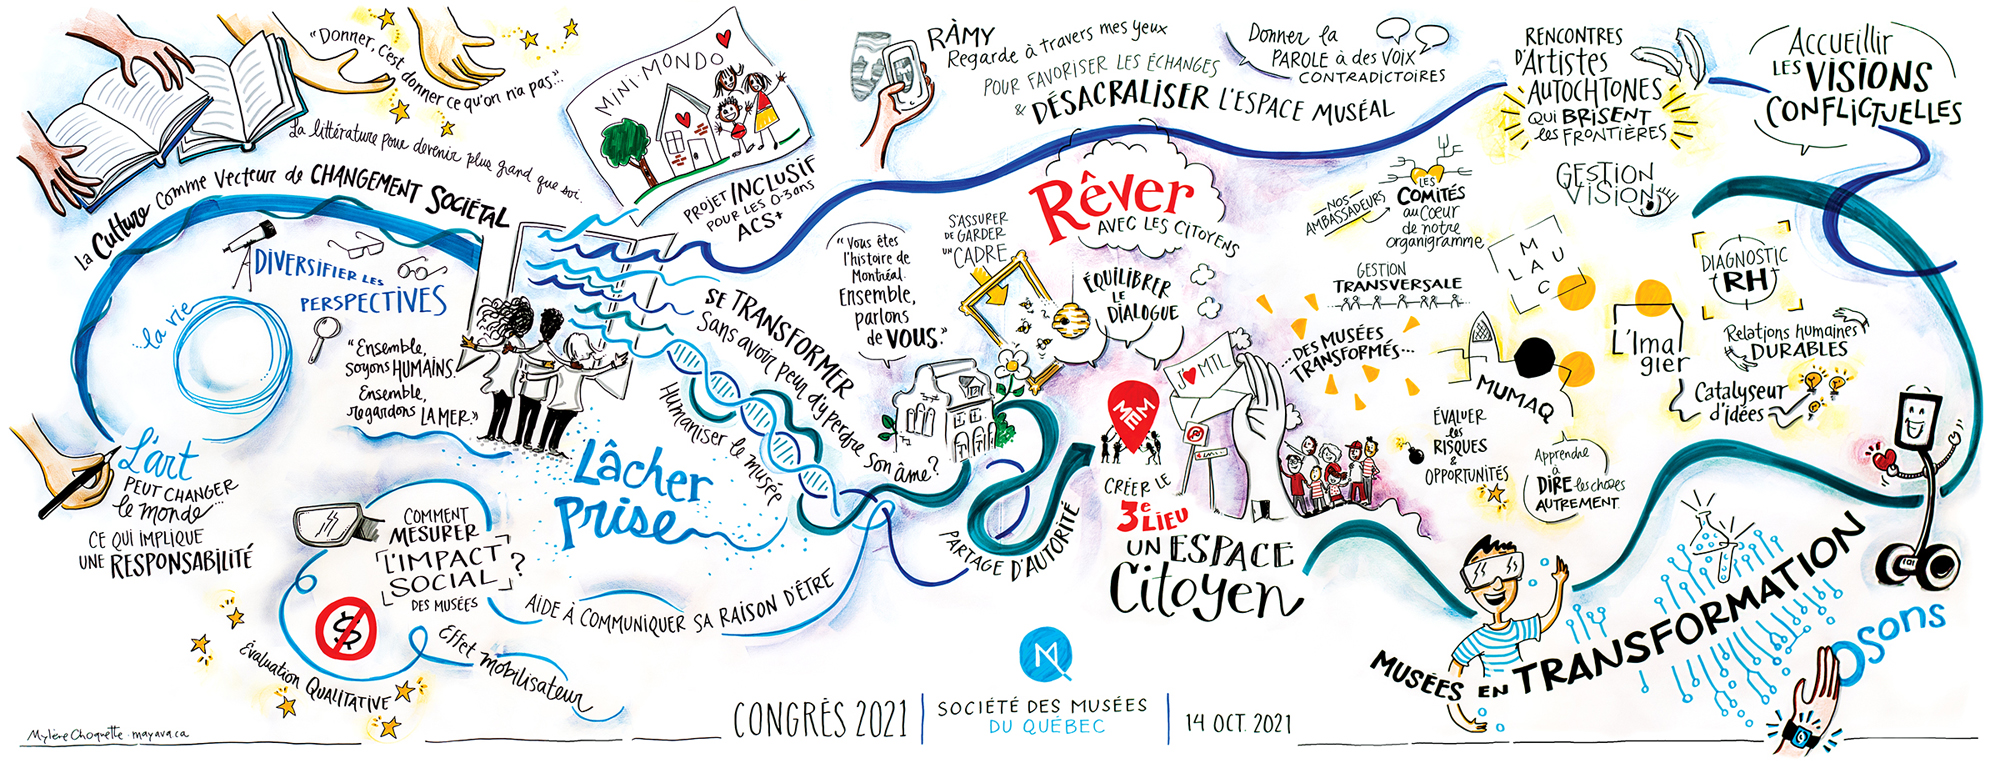 "Donner, c'est
donner ce qu'on n'a pas..."
La littérature pour devenir plus grand que soi.
La Culture comme vecteur de CHANGEMENT SOCIÉTAL
la vie
DIVERSIFIER LES
PERSPECTIVES
"Ensemble,
soyons HUMAINS.
Ensemble,
regardons LA MER."
L'art
PEUT CHANGER
le monde...
CE QUI IMPLIQUE
UNE RESPONSABILITÉ
COMMENT
MESURER
L'IMPACT
SOCIAL ?
DES MUSÉES
$
Évaluation QUALITATIVE
Effet mobilisateur
AIDE À COMMUNIQUER SA RAISON D'ÊTRE
Lâcher
prise
MINI-MONDO
PROJET INCLUSIF
POUR LES 0-3 ans
ACS+
SE TRANSFORMER
sans avoir peur d'y perdre son âme?
Humaniser le musée
RÀMY
Regarde à travers mes yeux
POUR FAVORISER LES ÉCHANGES
& DÉSACRALISER L'ESPACE MUSÉAL
Donner la
PAROLE à des VOIX
CONTRADICTOIRES
RENCONTRES
D'Artistes
AUTOCHTONES
QUI BRISENT
les FRONTIÈRES
Accueillir
LES VISIONS
CONFLICTUELLES
"Vous êtes
l'histoire de
Montréal.
Ensemble,
parlons
de VOUS."
S'ASSURER
DE GARDER
UN CADRE
Rêver
AVEC LES CITOYENS
ÉQUILIBRER
LE
DIALOGUE
PARTAGE D'AUTORITÉ
MEM
J'♥ MTL
P
CRÉER LE
3e LIEU
UN ESPACE
Citoyen
NOS
AMBASSADEURS
LES
COMITÉS
au Coeur
de notre
organigramme
GESTION
TRANSVERSALE
...DES MUSÉES
TRANSFORMÉS...
GESTION
VISION
M
L A U
C
MUMAQ
L'Ima
gier
DIAGNOSTIC
RH
Relations humaines
DURABLES
Catalyseur
d'idées
ÉVALUER
les
RISQUES
&
OPPORTUNITÉS
Apprendre
à
DIRE les choses
AUTREMENT.
MUSÉES EN TRANSFORMATION
Osons
CONGRÈS 2021
M
SOCIÉTÉ DES MUSÉES
DU QUÉBEC
14 OCT. 2021
Mylène Choquette · mayava.ca